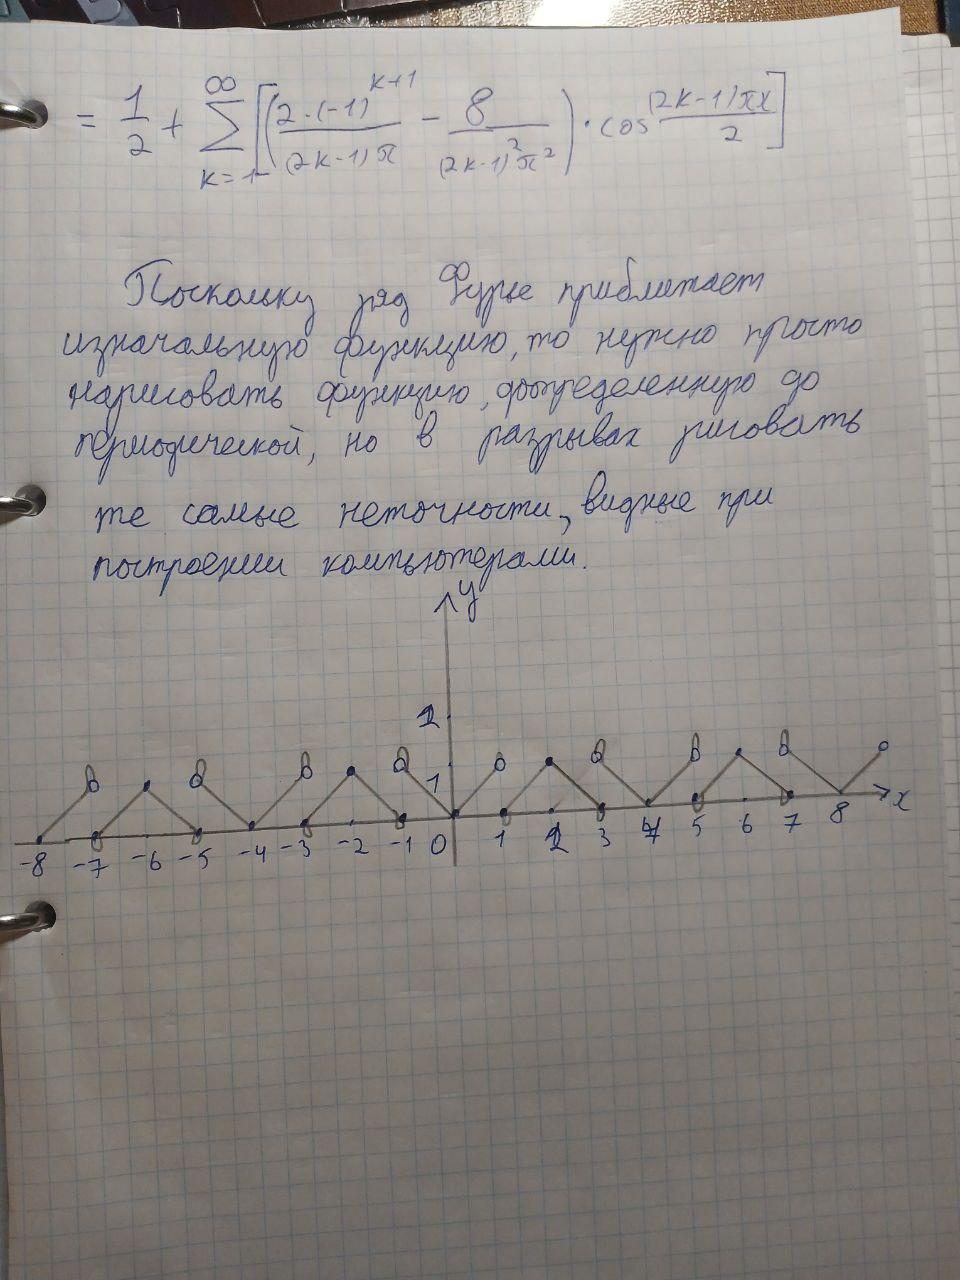 = 1/2 + ∑_{k=1}^{∞} [(2·(-1)^{k+1}/((2k-1)π) - 8/((2k-1)²π²)) · cos((2k-1)πx/2)]
Поскольку ряд Фурье приближает
изначальную функцию, то нужно просто
нарисовать функцию, доопределенную до
периодической, но в разрывах рисовать
те самые неточности, видные при
построении компьютерами.
y
2
1
x
-8 -7 -6 -5 -4 -3 -2 -1 0 1 2 3 4 5 6 7 8